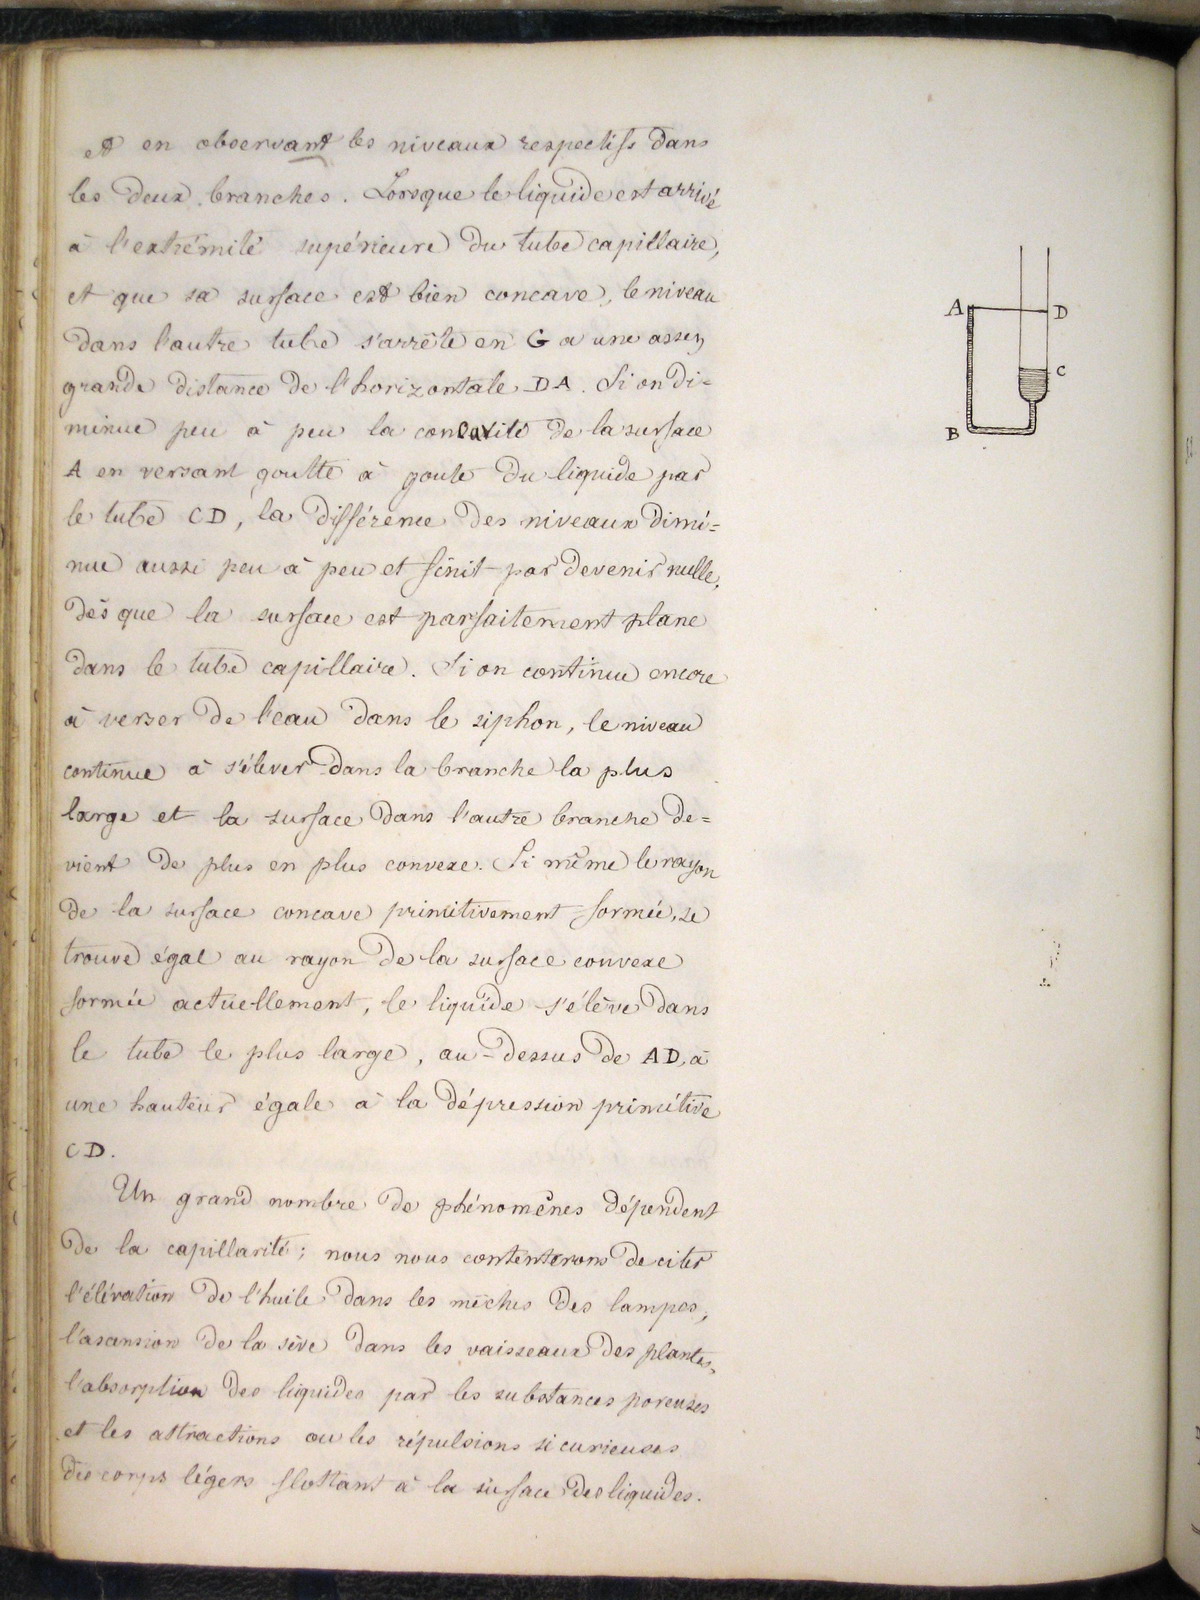 et en observant les niveaux respectifs dans
les deux branches. Lorsque le liquide est arrivé
à l'extrémité supérieure du tube capillaire,
et que sa surface est bien concave, le niveau
dans l'autre tube s'arrête en G a une assez
grande distance de l'horizontale DA. Si on di=
minue peu à peu la concavité de la surface
A en versant goutte à goute du liquide par
le tube CD, la différence des niveaux dimi=
nue aussi peu à peu et finit par devenir nulle,
dès que la surface est parfaitement plane
dans le tube capillaire. Si on continue encore
à verser de l'eau dans le siphon, le niveau
continue à s'élever dans la branche la plus
large et la surface dans l'autre branche de=
vient de plus en plus convexe. Si même le rayon
de la surface concave primitivement formée, se
trouve égal au rayon de la surface convexe
formée actuellement, le liquide s'élève dans
le tube le plus large, au-dessus de AD, à
une hauteur égale à la dépression primitive
CD.
Un grand nombre de phénomènes dépendent
de la capillarité; nous nous contenterons de citer
l'élévation de l'huile dans les mèches des lampes,
l'ascension de la sève dans les vaisseaux des plantes,
l'absorption des liquides par les substances poreuses
et les attractions ou les répulsions si curieuses
des corps légers flottant à la surface des liquides.
A
D
C
B